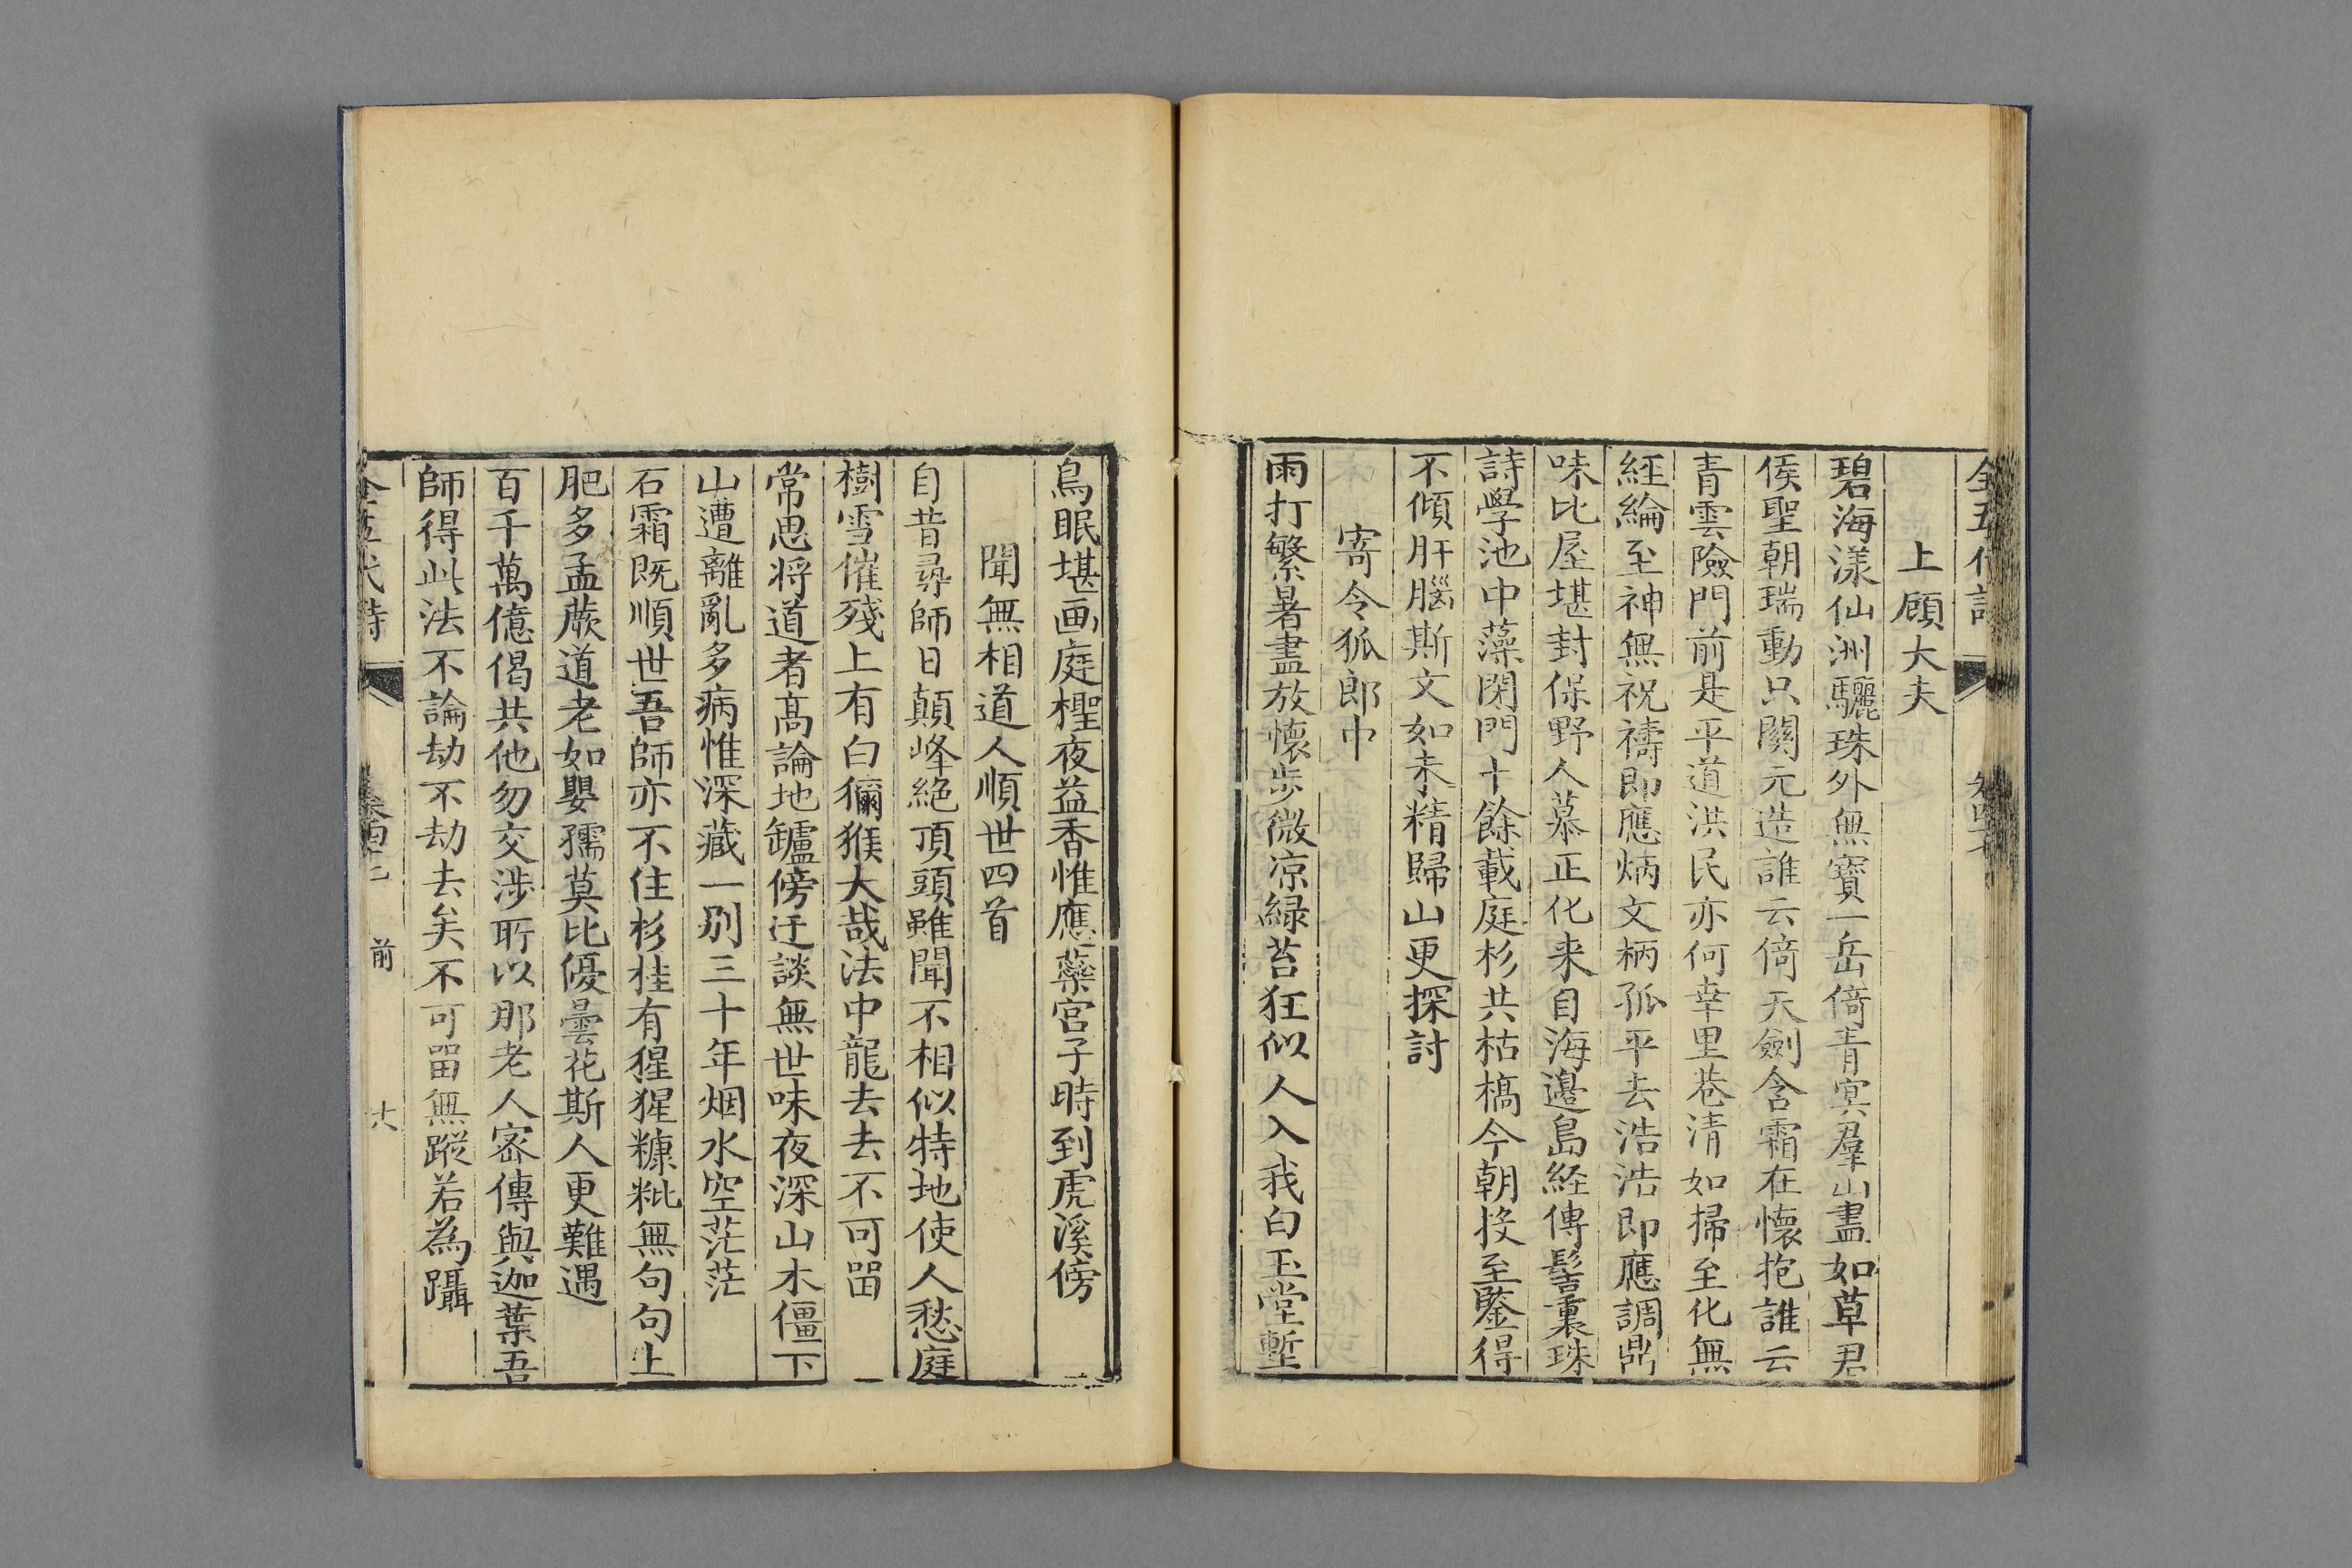 上顧大夫
碧海漾仙洲驪珠外無寶一岳倚青冥羣山盡如草君
侯聖朝瑞動只關元造誰云倚天劍含霜在懷抱誰云
青雲險門前是平道洪民亦何幸里巷清如掃至化無
經綸至神無祝禱即應炳文柄孤平去浩浩即應調鼎
味比屋堪封保野人慕正化来自海邉島經傳髻裏珠
詩學池中藻閉門十餘載庭杉共枯槁今朝投至鑒得
不傾肝腦斯文如未精歸山更探討
寄令狐郎中
雨打繁暑盡放懷步微凉緑苔狂似人入我白玉堂塹
鳥眠堪画庭檉夜益香惟應藥宫子時到虎溪傍
聞無相道人順世四首
自昔尋師日顛峰絶頂頭雖聞不相似特地使人愁庭
樹雪催殘上有白獼猴大哉法中龍去去不可畱
常思将道者髙論地罏傍迂談無世味夜深山木僵下
山遭離亂多病惟深藏一别三十年烟水空茫茫
石霜既順世吾師亦不住杉桂有猩猩糠粃無句句土
肥多孟蕨道老如嬰孺莫比優曇花斯人更難遇
百千萬億偈共他勿交涉所以那老人宻傳與迦葉吾
師得此法不論劫不劫去矣不可畱無蹤若為躡
全五代詩 前 十六